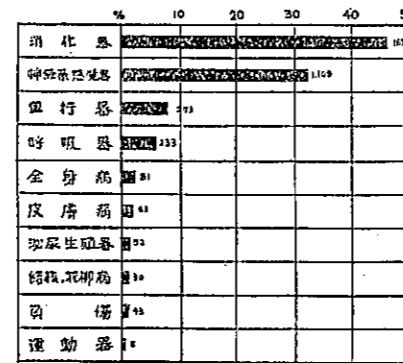 % 10 20 30 40
消化器
神経系感覚器
血行器 273
呼吸器 233
全身病 81
皮膚病 63
泌尿生殖器 52
結核、花柳病 30
負傷 43
運動器 8